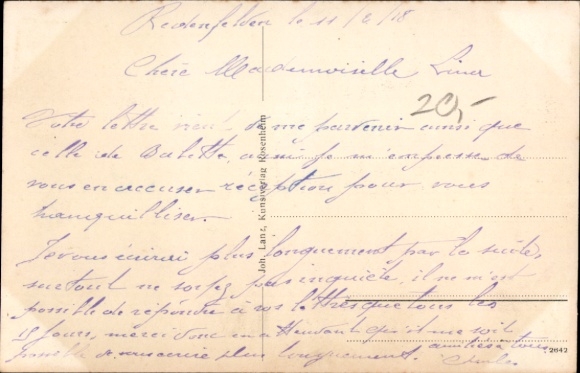 Redenfelden le 11/2/18
Chère Mademoiselle Lina
20,-
Votre lettre vient de me parvenir ainsi que
celle de Babette, aussi je m'empresse de
vous en accuser réception pour vous
tranquilliser.
Je vous écrirai plus longuement par la suite,
surtout ne soyez pas inquiète, il ne m'est
possible de répondre à vos lettres que tous les
15 jours, merci donc en attendant qu'il me soit
possible de vous écrire plus longuement. amitiés à tous
Joh. Lanz, Kunstverlag Rosenheim
2642